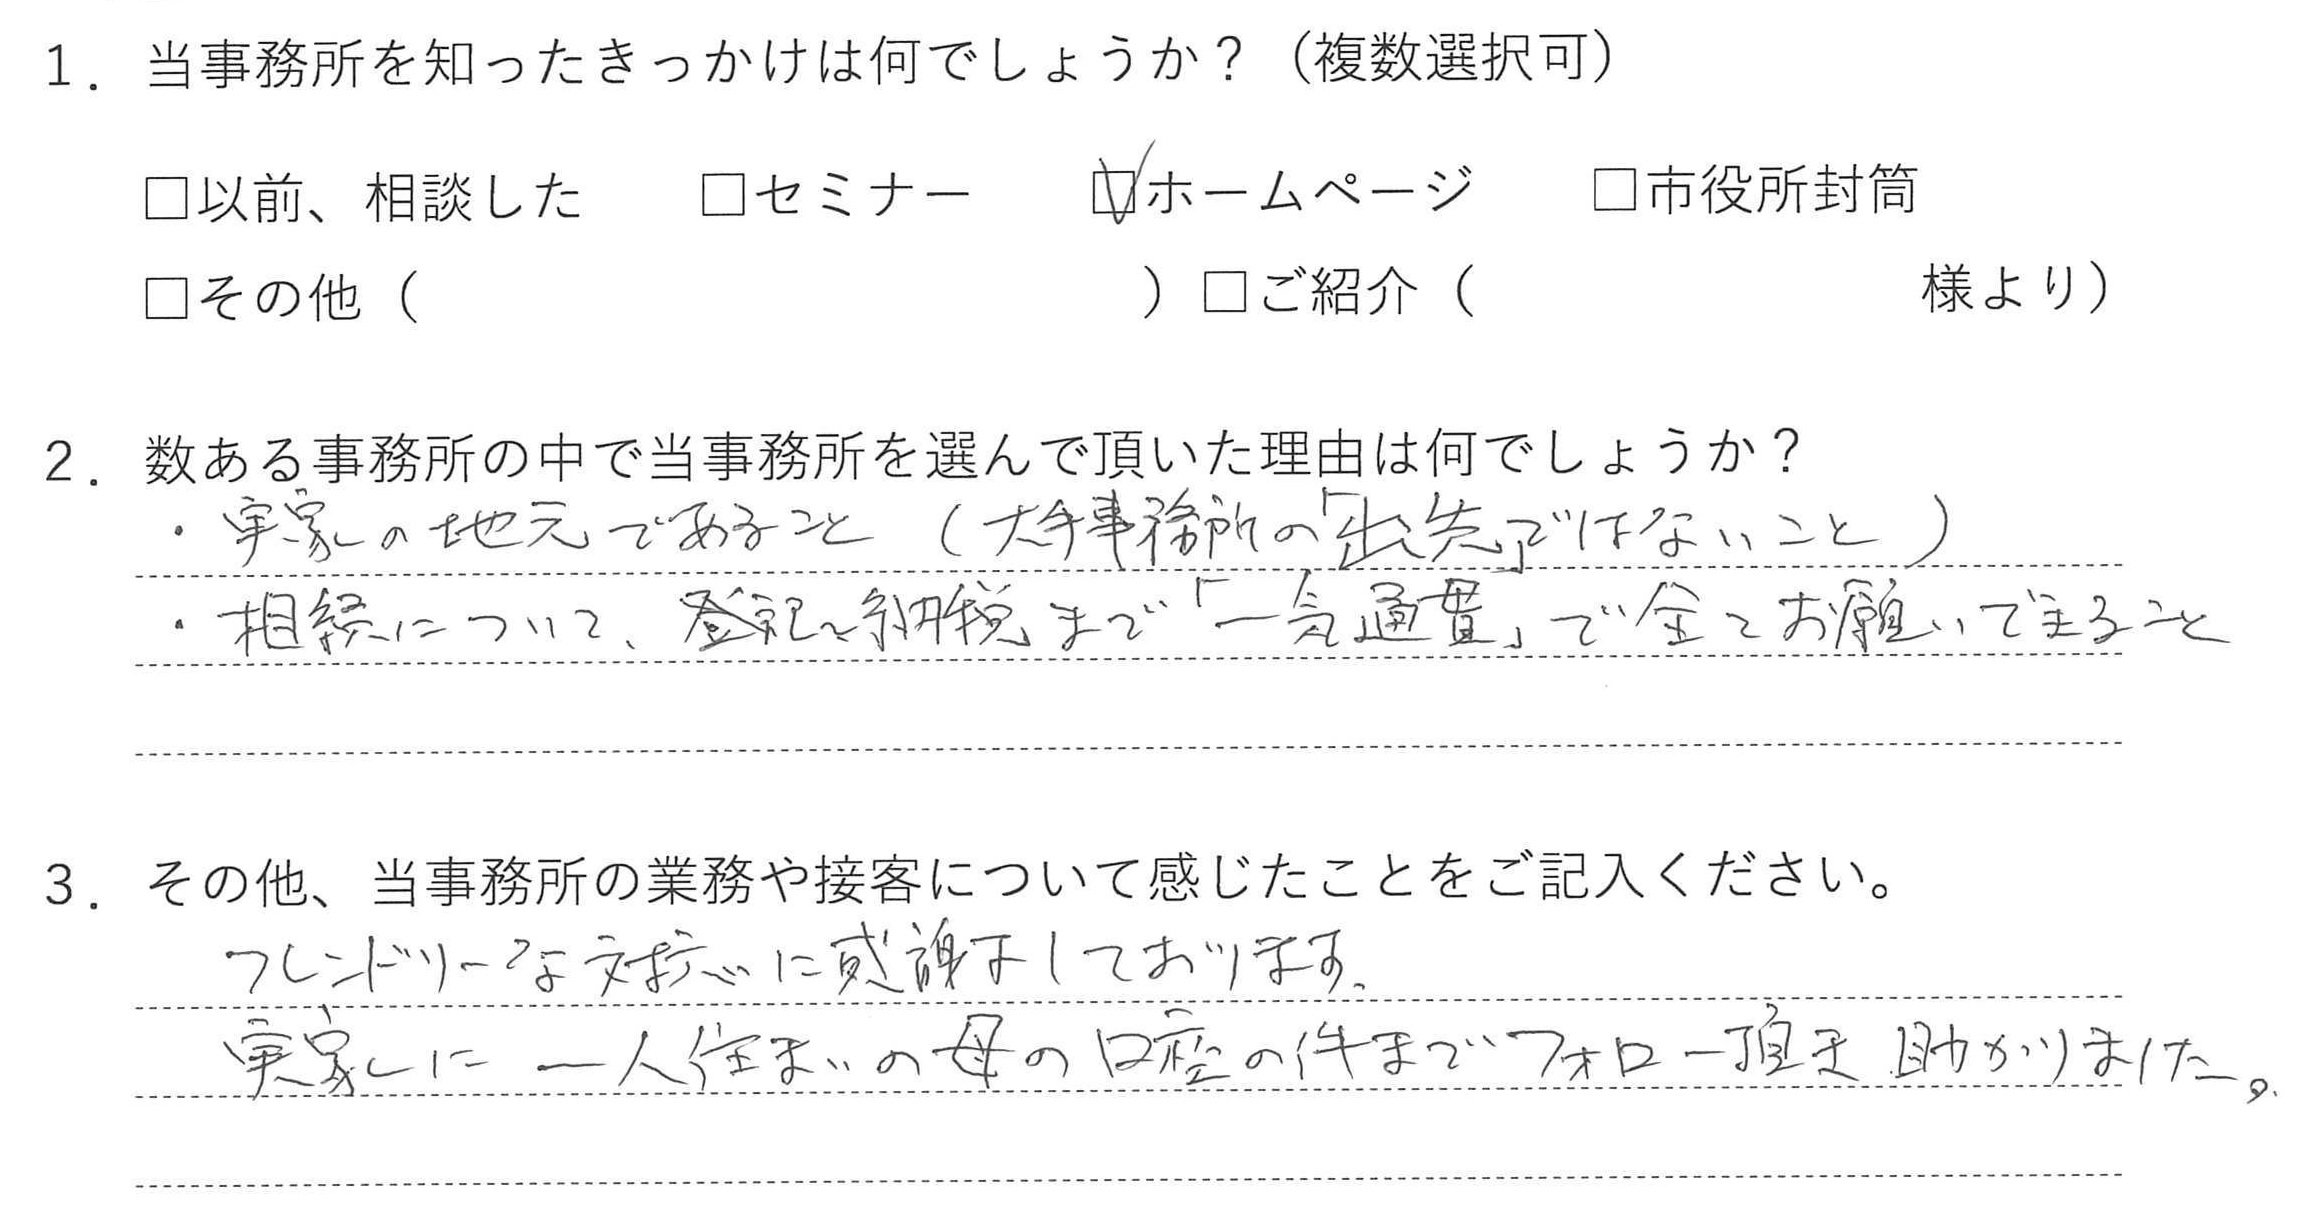 1. 当事務所を知ったきっかけは何でしょうか？（複数選択可）
□以前、相談した □セミナー ☑ホームページ □市役所封筒
□その他（ ）□ご紹介（ 様より）
2. 数ある事務所の中で当事務所を選んで頂いた理由は何でしょうか？
・実家の地元であること（大手事務所の「出先」ではないこと）
・相続について、登記～納税まで「一気通貫」で全てお願いできること
3. その他、当事務所の業務や接客について感じたことをご記入ください。
フレンドリーな対応に感謝しております。
実家に一人住まいの母の口座の件までフォロー頂き助かりました。